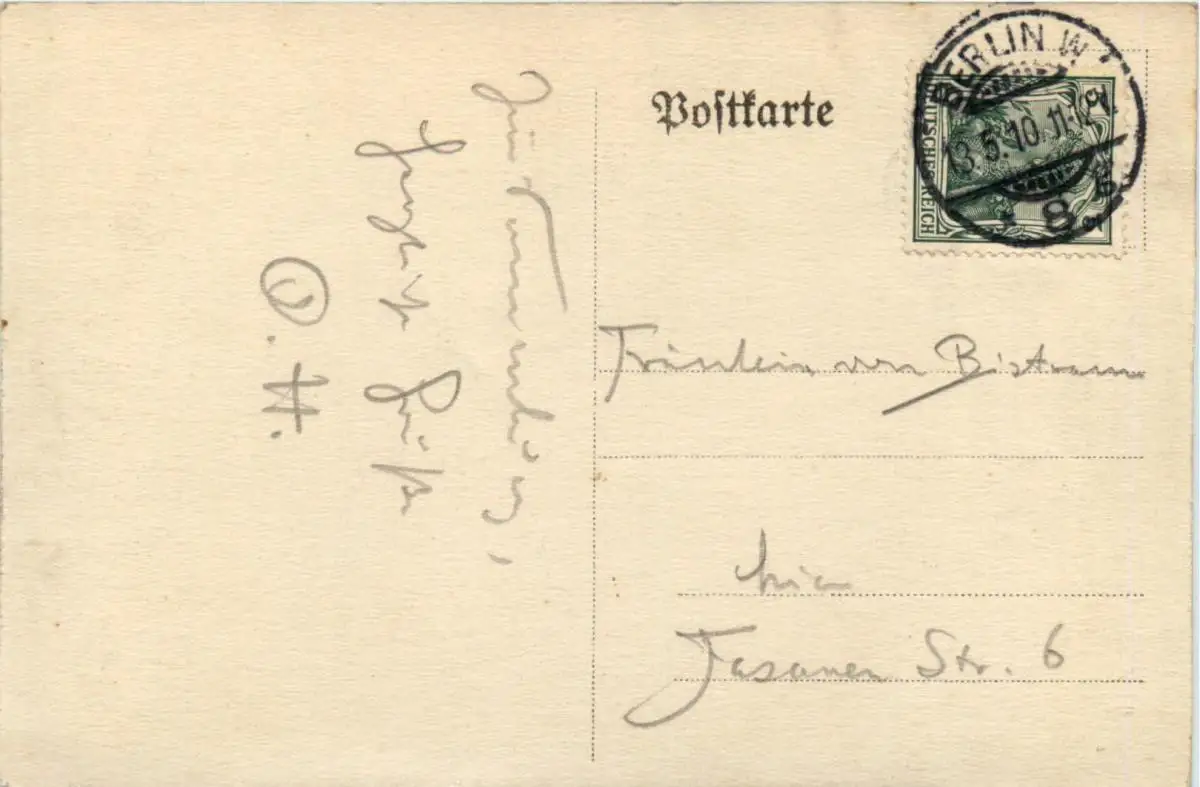 Zur Erinnerung,
Herzliche
Grüße
O. H.
Postkarte
BERLIN W
13.5.10. 11-12
8
DEUTSCHES REICH
Fräulein von Bistram
hier
Fasanen Str. 6